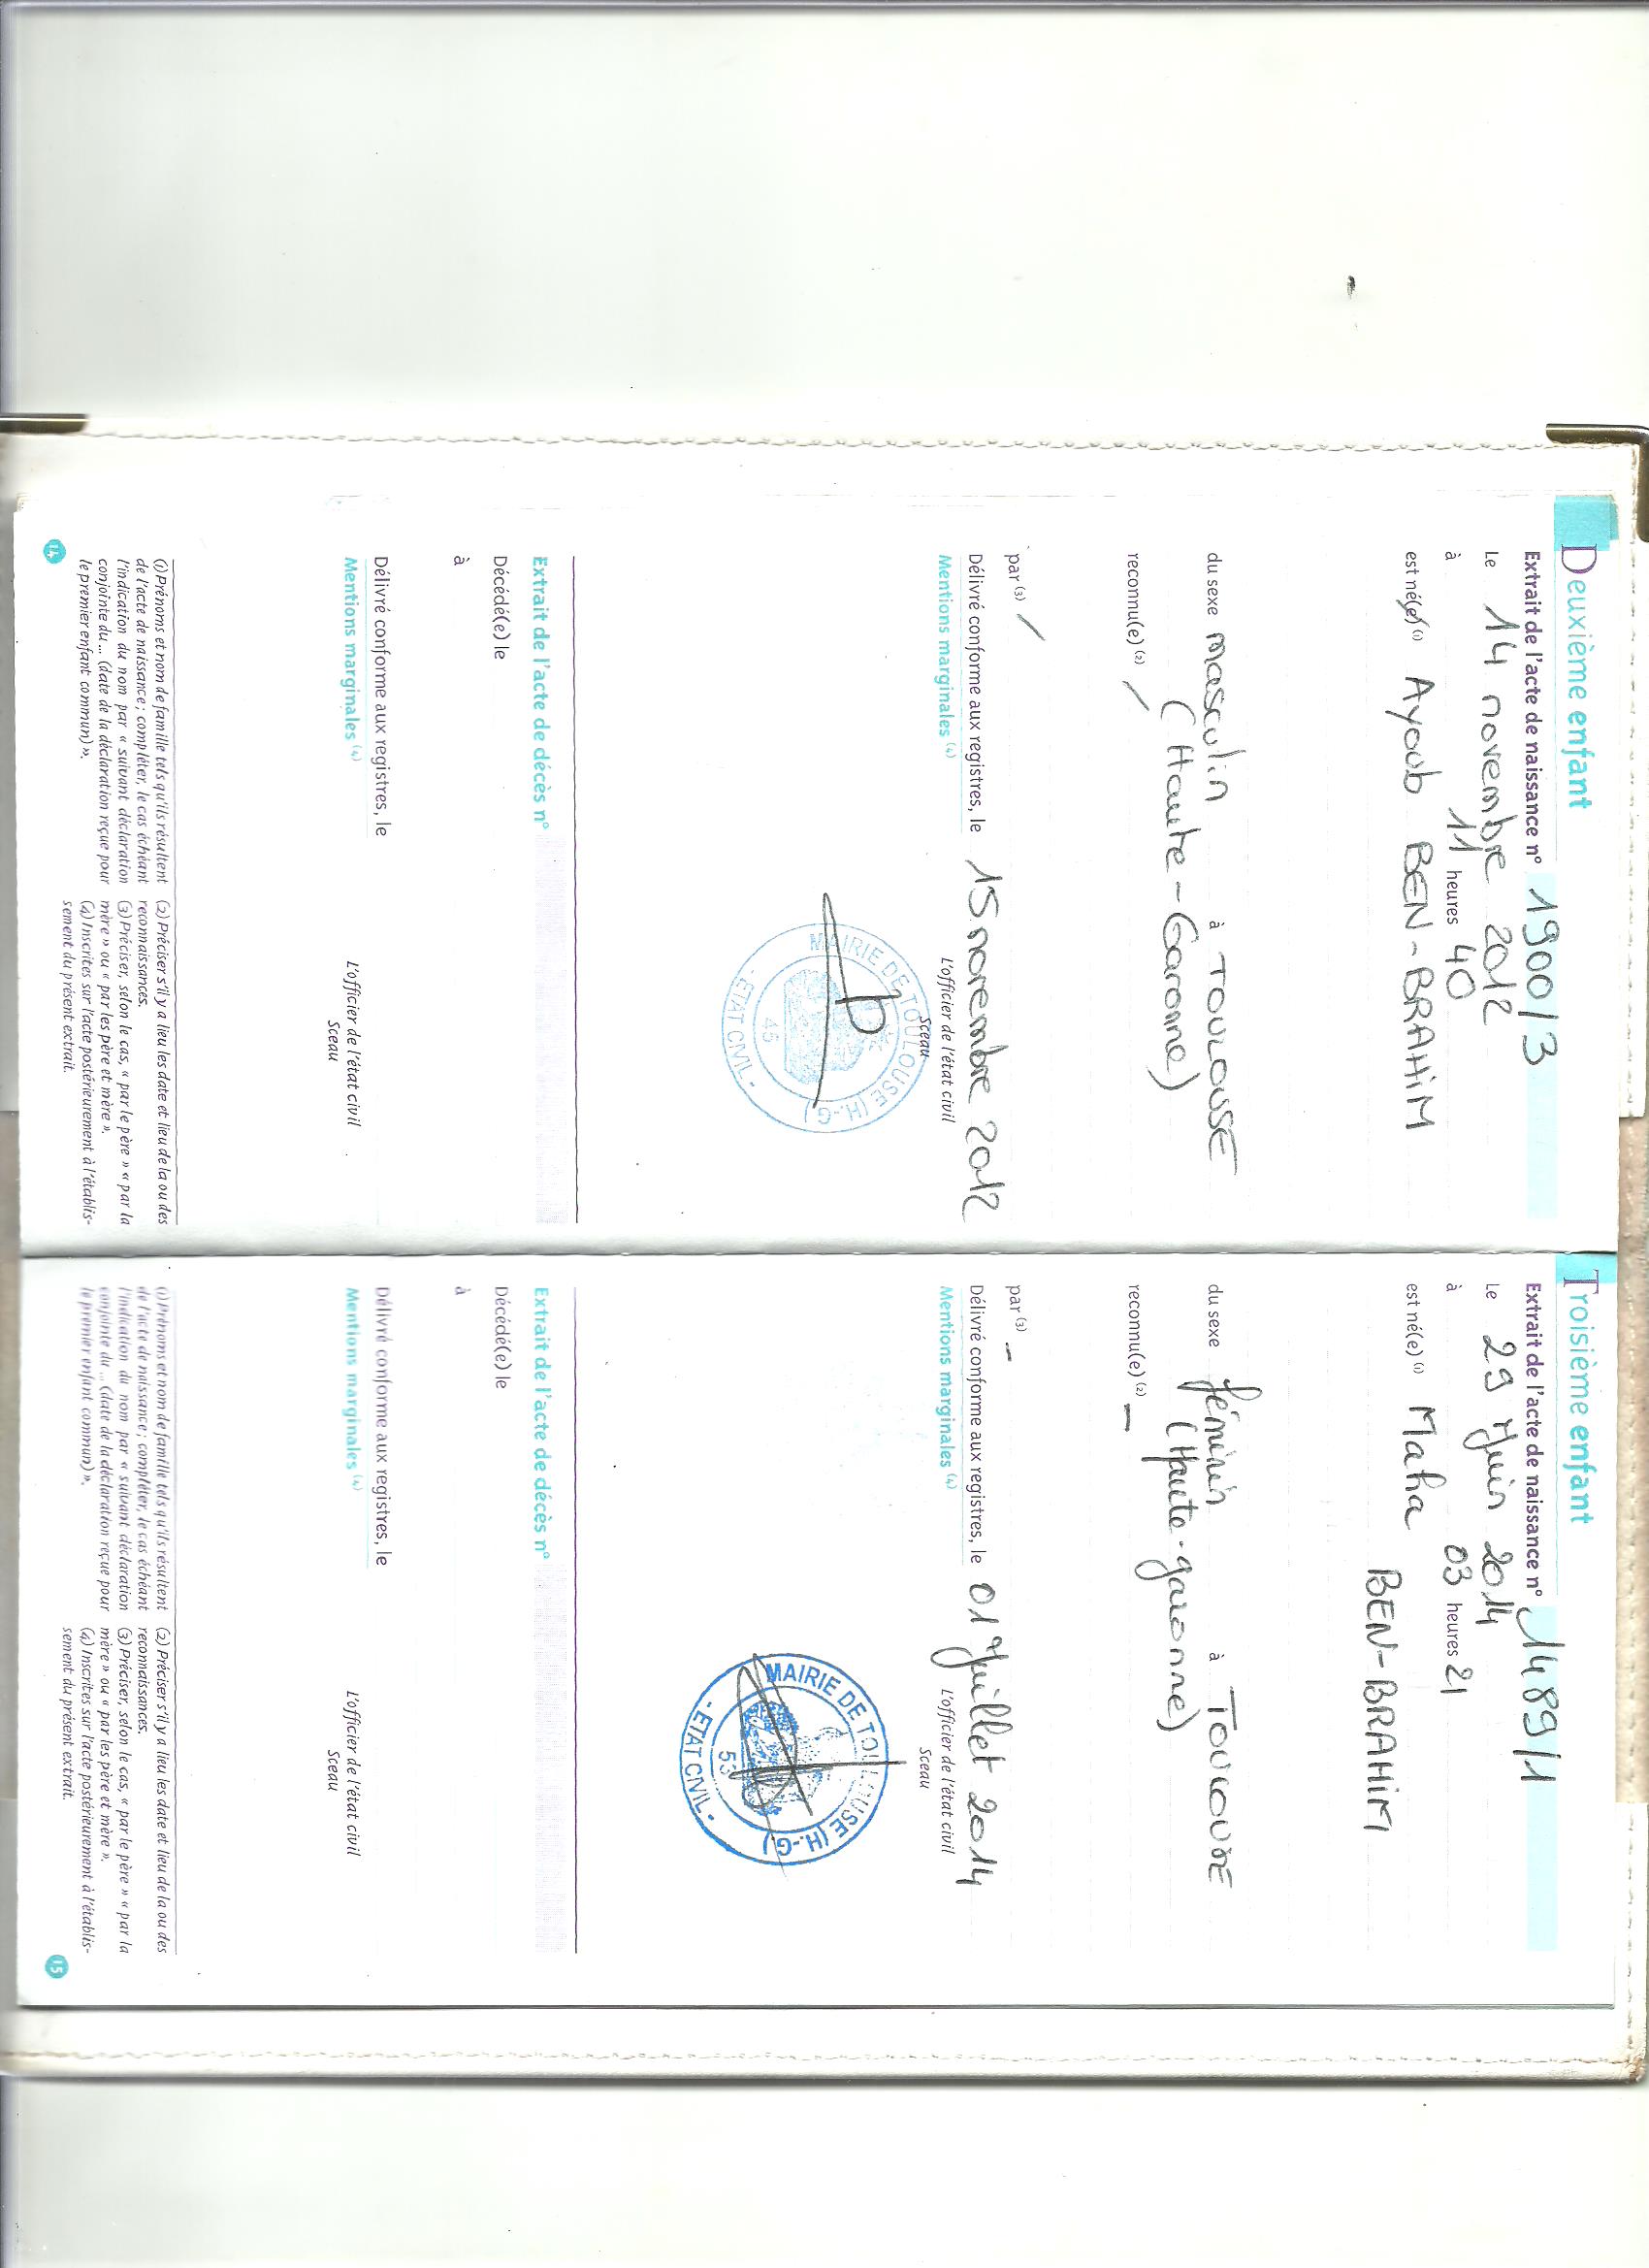 Deuxième enfant
Extrait de l'acte de naissance n° 1900/3
Le 14 novembre 2012
à 11 heures 40
est né(e) (1) Ayoub BEN-BRAHIM
du sexe masculin à TOULOUSE
(Haute-Garonne)
reconnu(e) (2) /
par (3) /
Délivré conforme aux registres, le 15 novembre 2012
Mentions marginales (4) L'officier de l'état civil
Sceau
MAIRIE DE TOULOUSE (H.-G)
- ÉTAT CIVIL -
45
Extrait de l'acte de décès n°
Décédé(e) le
à
Délivré conforme aux registres, le
Mentions marginales (4) L'officier de l'état civil
Sceau
(1) Prénoms et nom de famille tels qu'ils résultent
de l'acte de naissance ; compléter, le cas échéant
l'indication du nom par « suivant déclaration
conjointe du... (date de la déclaration reçue pour
le premier enfant commun) ».
(2) Préciser s'il y a lieu les date et lieu de la ou des
reconnaissances.
(3) Préciser, selon le cas, « par le père » « par la
mère » ou « par les père et mère ».
(4) Inscrites sur l'acte postérieurement à l'établis-
sement du présent extrait.
14
Troisième enfant
Extrait de l'acte de naissance n° 1489/1
Le 29 Juin 2014
à 03 heures 21
est né(e) (1) Maha
BEN-BRAHIM
du sexe féminin à TOULOUSE
(Haute-garonne)
reconnu(e) (2) —
par (3) —
Délivré conforme aux registres, le 01 Juillet 2014
Mentions marginales (4) L'officier de l'état civil
Sceau
MAIRIE DE TOULOUSE (H.-G)
- ÉTAT CIVIL -
53
Extrait de l'acte de décès n°
Décédé(e) le
à
Délivré conforme aux registres, le
Mentions marginales (4) L'officier de l'état civil
Sceau
(1) Prénoms et nom de famille tels qu'ils résultent
de l'acte de naissance ; compléter, le cas échéant
l'indication du nom par « suivant déclaration
conjointe du ... (date de la déclaration reçue pour
le premier enfant commun) ».
(2) Préciser s'il y a lieu les date et lieu de la ou des
reconnaissances.
(3) Préciser, selon le cas, « par le père » « par la
mère » ou « par les père et mère ».
(4) Inscrites sur l'acte postérieurement à l'établis-
sement du présent extrait.
15